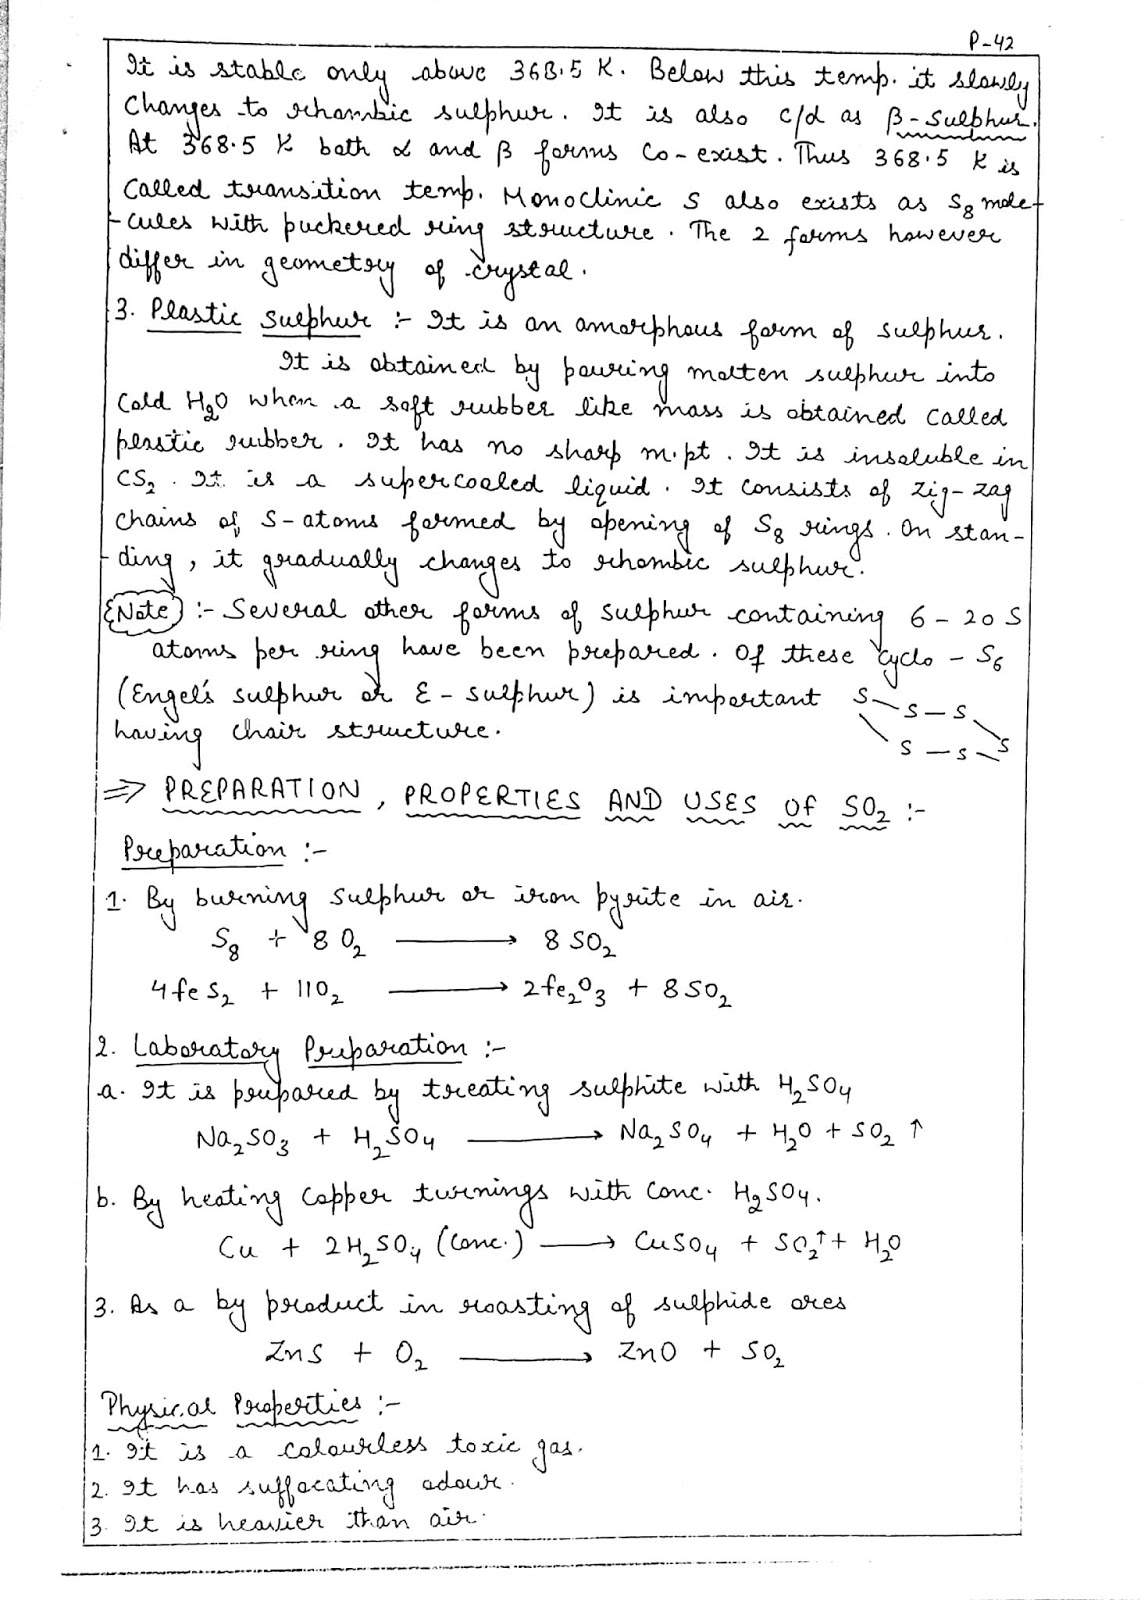 P-42
It is stable only above 368.5 K. Below this temp. it slowly
changes to rhombic sulphur. It is also c/d as β-sulphur.
At 368.5 K both α and β forms co-exist. Thus 368.5 K is
called transition temp. Monoclinic S also exists as S₈ mole-
-cules with puckered ring structure. The 2 forms however
differ in geometry of crystal.
3. Plastic Sulphur :- It is an amorphous form of sulphur.
It is obtained by pouring molten sulphur into
cold H₂O when a soft rubber like mass is obtained called
plastic rubber. It has no sharp m.pt. It is insoluble in
CS₂. It is a supercooled liquid. It consists of zig-zag
chains of S-atoms formed by opening of S₈ rings. On stan-
-ding, it gradually changes to rhombic sulphur.
Note :- Several other forms of sulphur containing 6-20 S
atoms per ring have been prepared. Of these cyclo-S₆
(Engel's sulphur or ε-sulphur) is important
having chair structure.
S S-S
S-S-S
⇒ PREPARATION, PROPERTIES AND USES OF SO₂ :-
Preparation :-
1. By burning sulphur or iron pyrite in air.
S₈ + 8O₂ ⟶ 8SO₂
4feS₂ + 11O₂ ⟶ 2fe₂O₃ + 8SO₂
2. Laboratory Preparation :-
a. It is prepared by treating sulphite with H₂SO₄
Na₂SO₃ + H₂SO₄ ⟶ Na₂SO₄ + H₂O + SO₂ ↑
b. By heating copper turnings with conc. H₂SO₄.
Cu + 2H₂SO₄ (conc.) ⟶ CuSO₄ + SO₂↑ + H₂O
3. As a by product in roasting of sulphide ores
ZnS + O₂ ⟶ ZnO + SO₂
Physical Properties :-
1. It is a colourless toxic gas.
2. It has suffocating odour.
3. It is heavier than air.